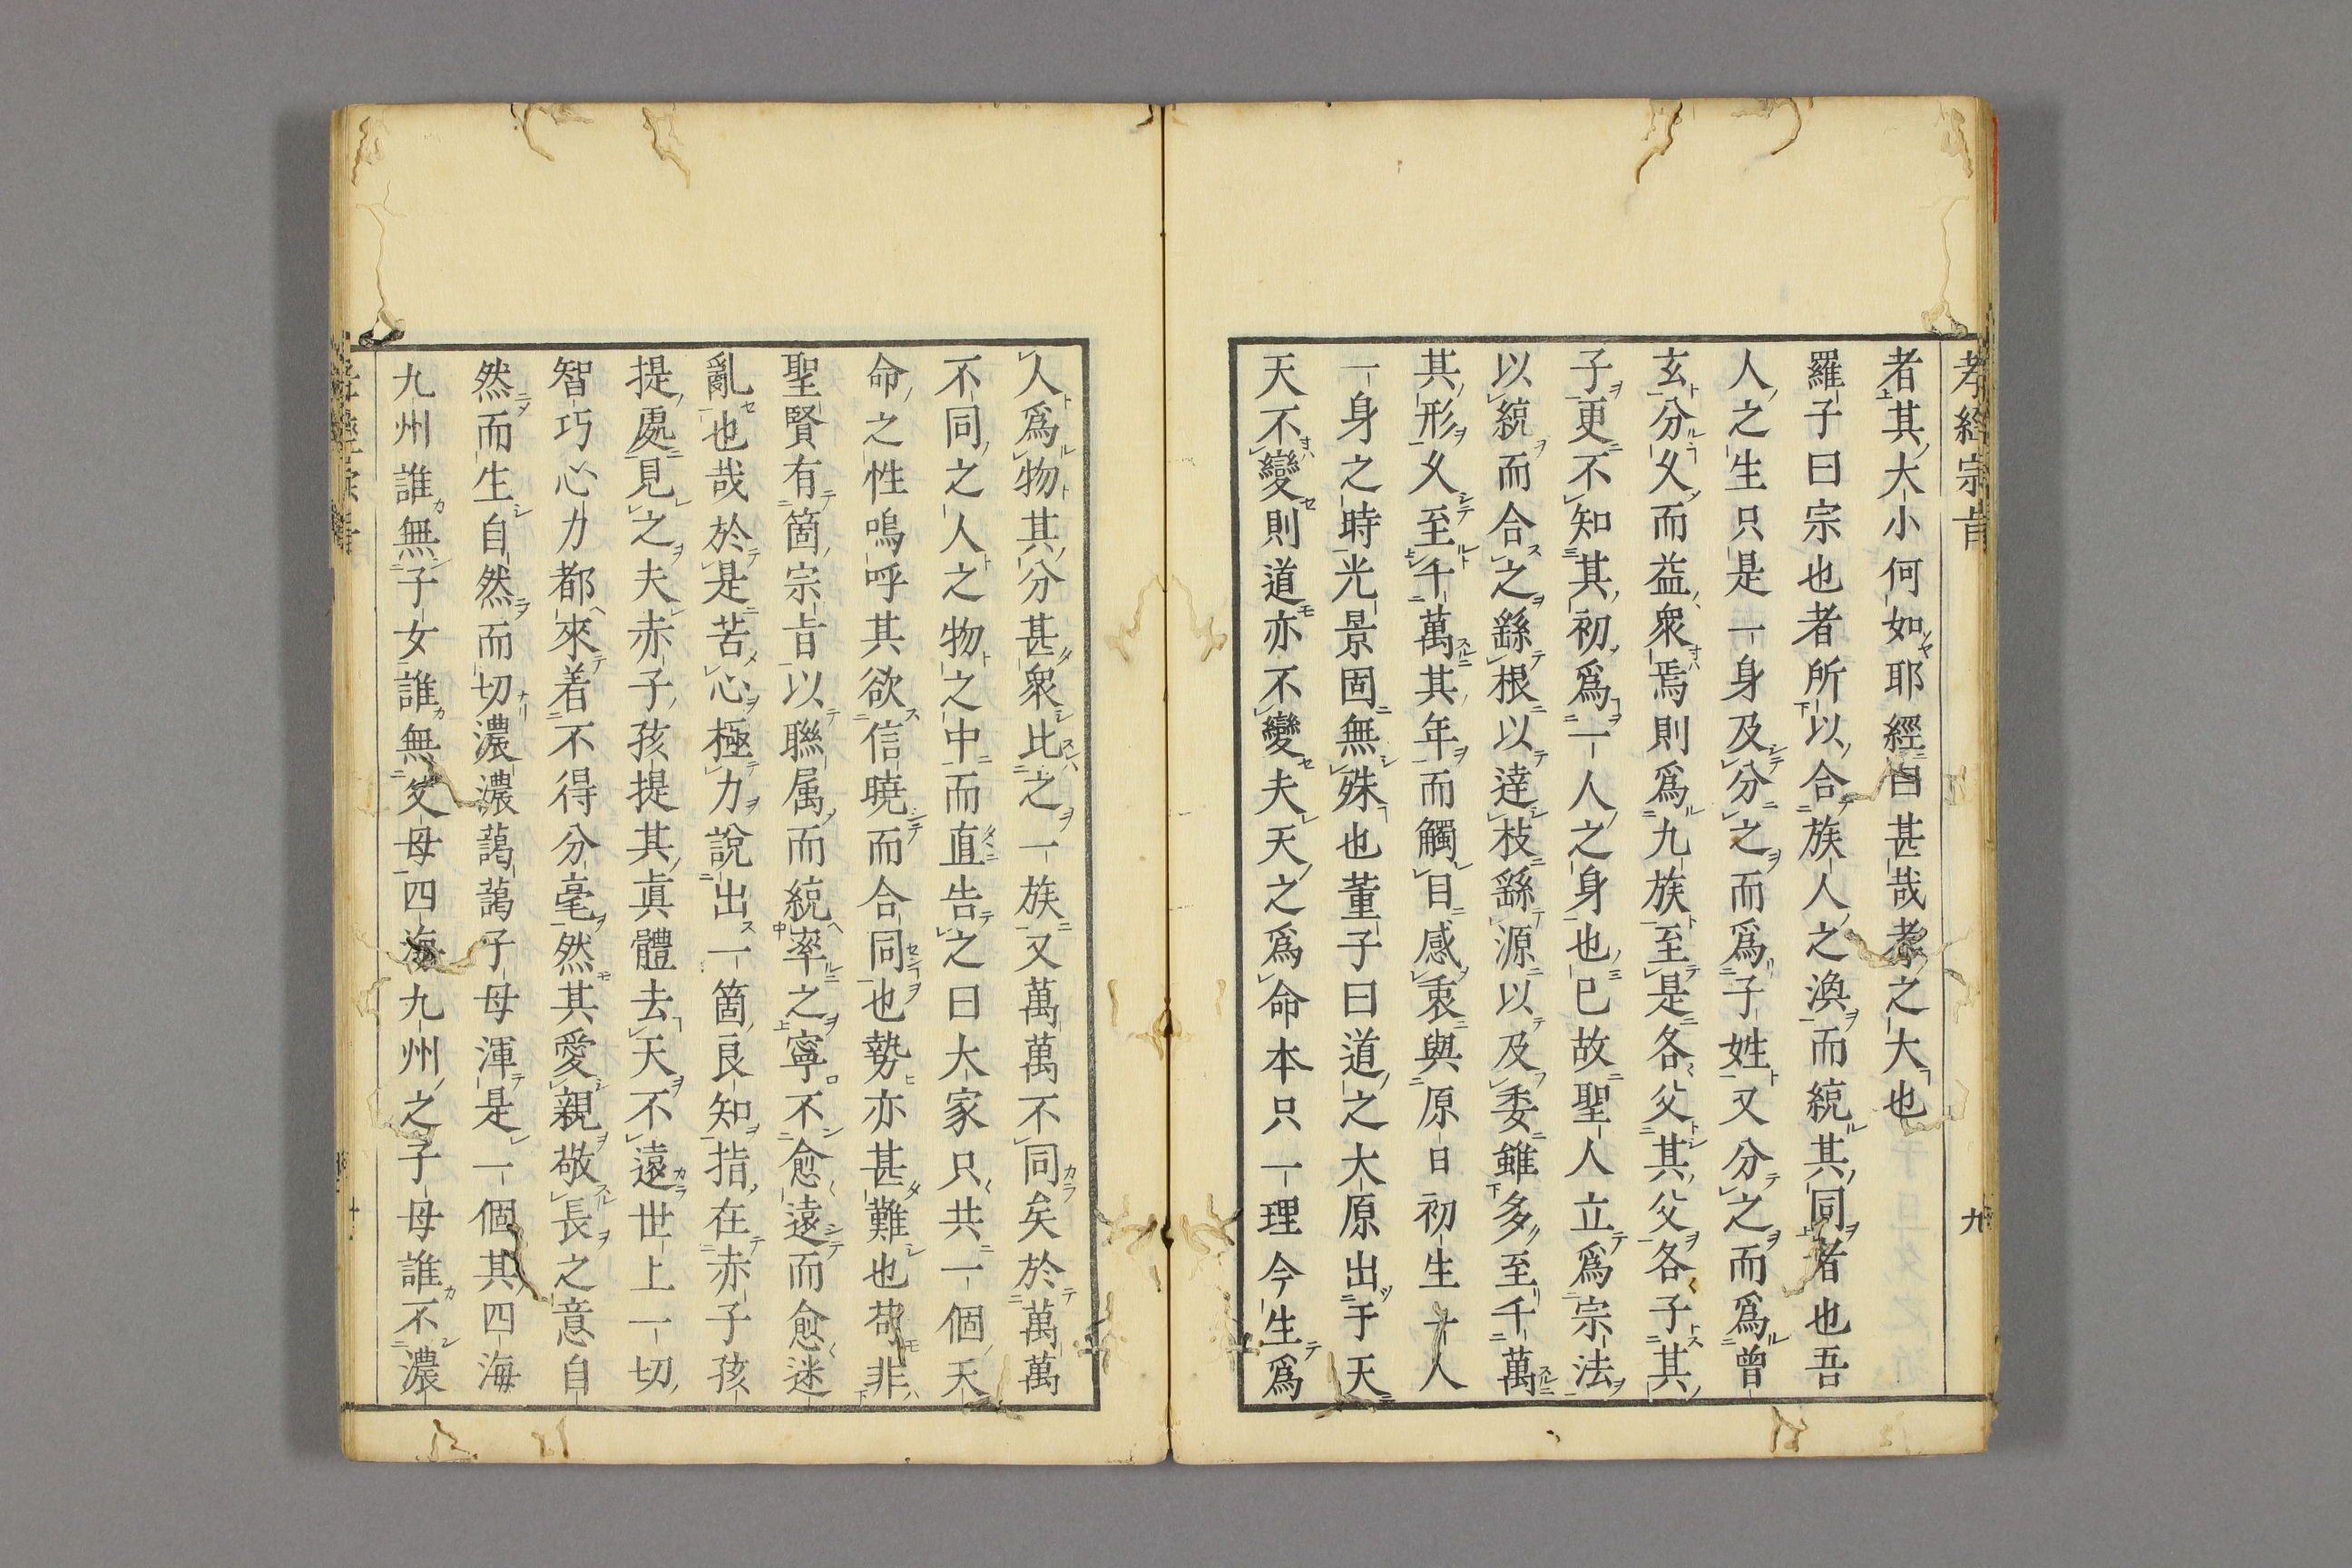 孝經宗旨
九
者其大小何如耶經曰甚哉孝之大也
羅子曰宗也者所以合族人之渙而綂其同者也吾
人之生只是一身及分之而爲子姓又分之而爲曾
玄分乆而益衆焉則爲九族至是各父其父各子其
子更不知其初爲一人之身也已故聖人立爲宗法
以綂而合之繇根以達枝繇源以及委雖多至千萬
其形乆至千萬其年而觸目感衷與原日初生一人
一身之時光景固無殊也董子曰道之大原出于天
天不變則道亦不變夫天之爲命本只一理今生爲
人爲物其分甚衆比之一族又萬萬不同矣於萬萬
不同之人之物之中而直告之曰大家只共一個天
命之性嗚呼其欲信曉而合同也勢亦甚難也苟非
聖賢有箇宗旨以聯属而綂率之寧不愈遠而愈迷
亂也哉於是苦心極力說出一箇良知指在赤子孩
提處見之夫赤子孩提其眞體去天不遠世上一切
智巧心力都來着不得分毫然其愛親敬長之意自
然而生自然而切濃濃藹藹子母渾是一個其四海
九州誰無子女誰無父母四海九州之子母誰不濃
十